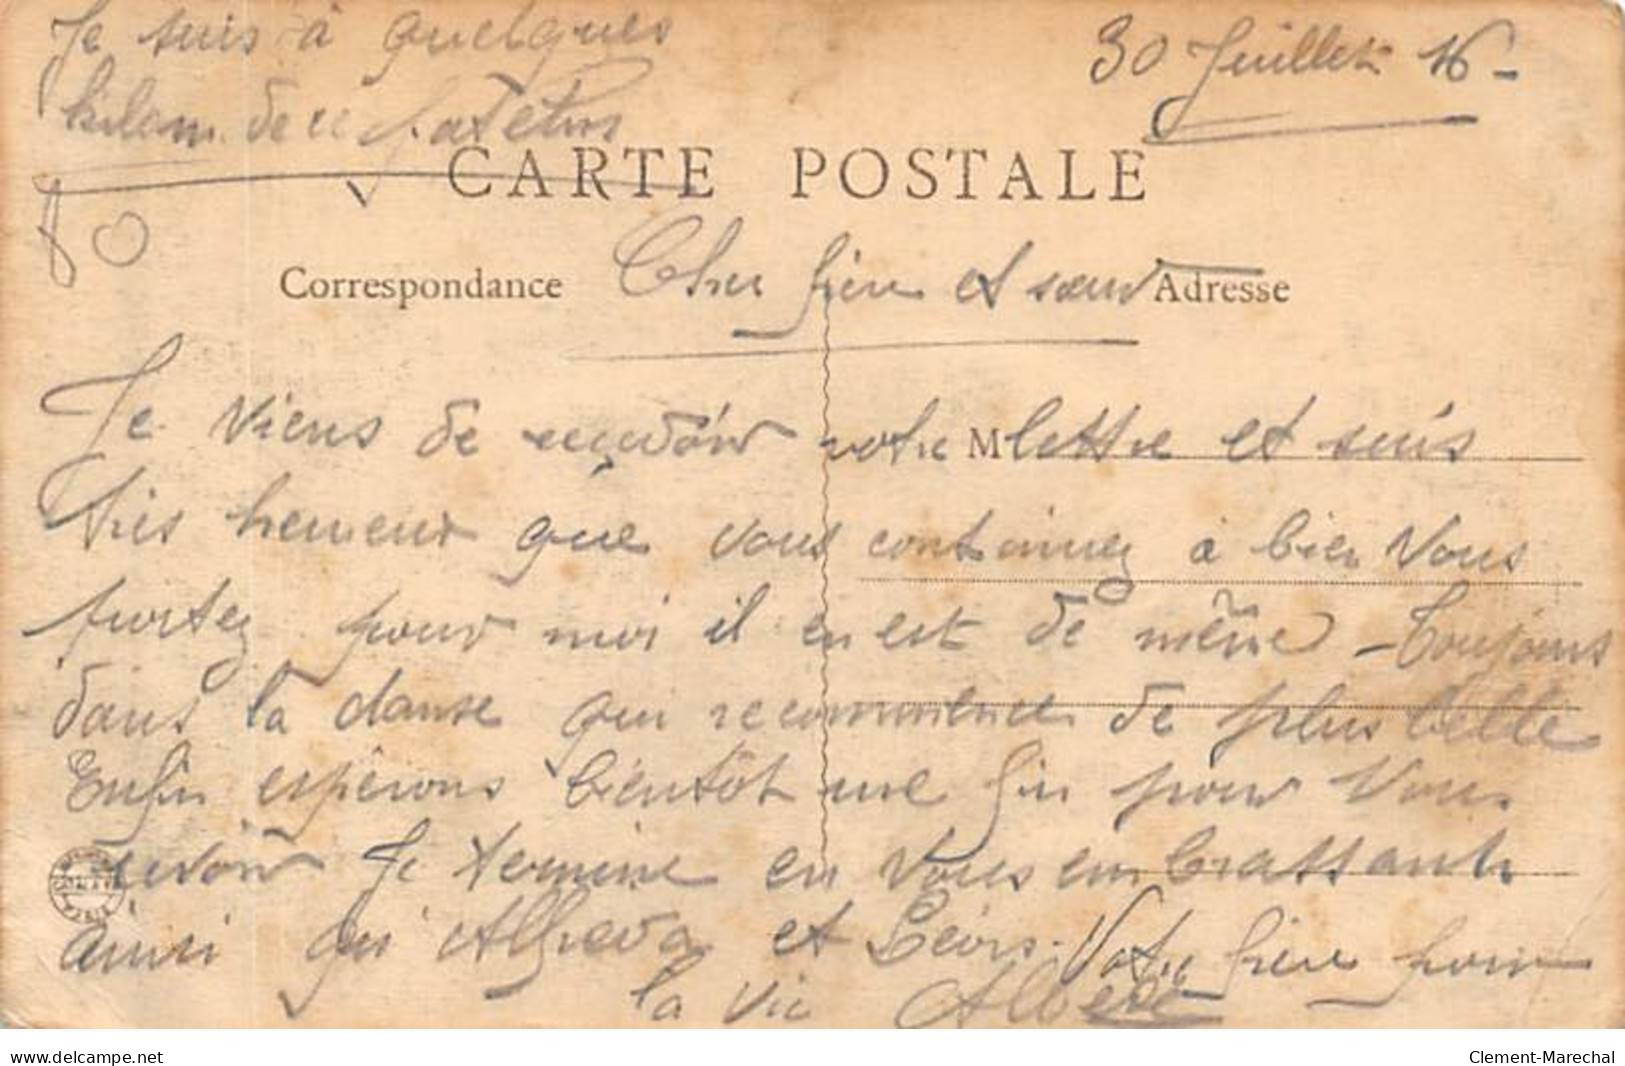 Je suis à quelques
kilom. de ce patelin
30 Juillet 16 -
CARTE POSTALE
Correspondance
Adresse
Cher frère et sœur
Je viens de recevoir votre lettre et suis
M
très heureux que vous continuez à bien vous
portez pour moi il en est de même - Toujours
dans la danse qui recommence de plus belle
Enfin espérons bientôt une fin pour vous
revoir Je termine en vous embrassant
ainsi que Alfreda et Léons. Votre frère pour
la vie Albert
delcampe.net
Clement-Marechal